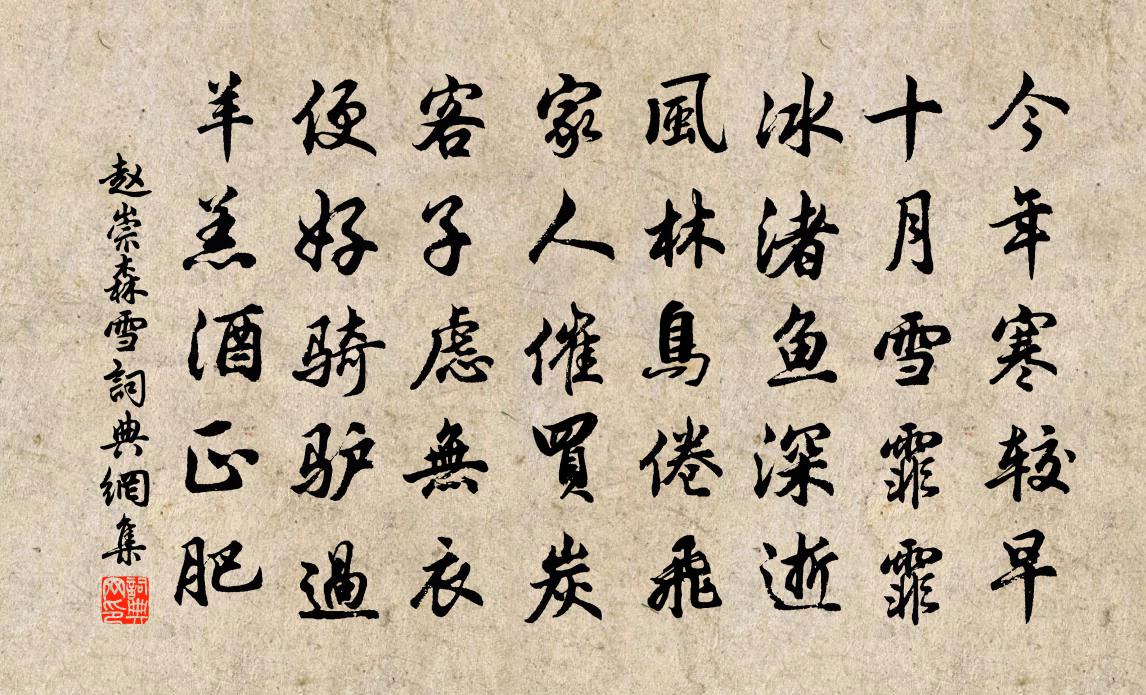 今年寒較早
十月雪霏霏
冰渚鱼深逝
風林鳥倦飛
家人催買炭
客子慮無衣
便好骑驴過
羊羔酒正肥
赵崇森雪詞典網集
詞典網印